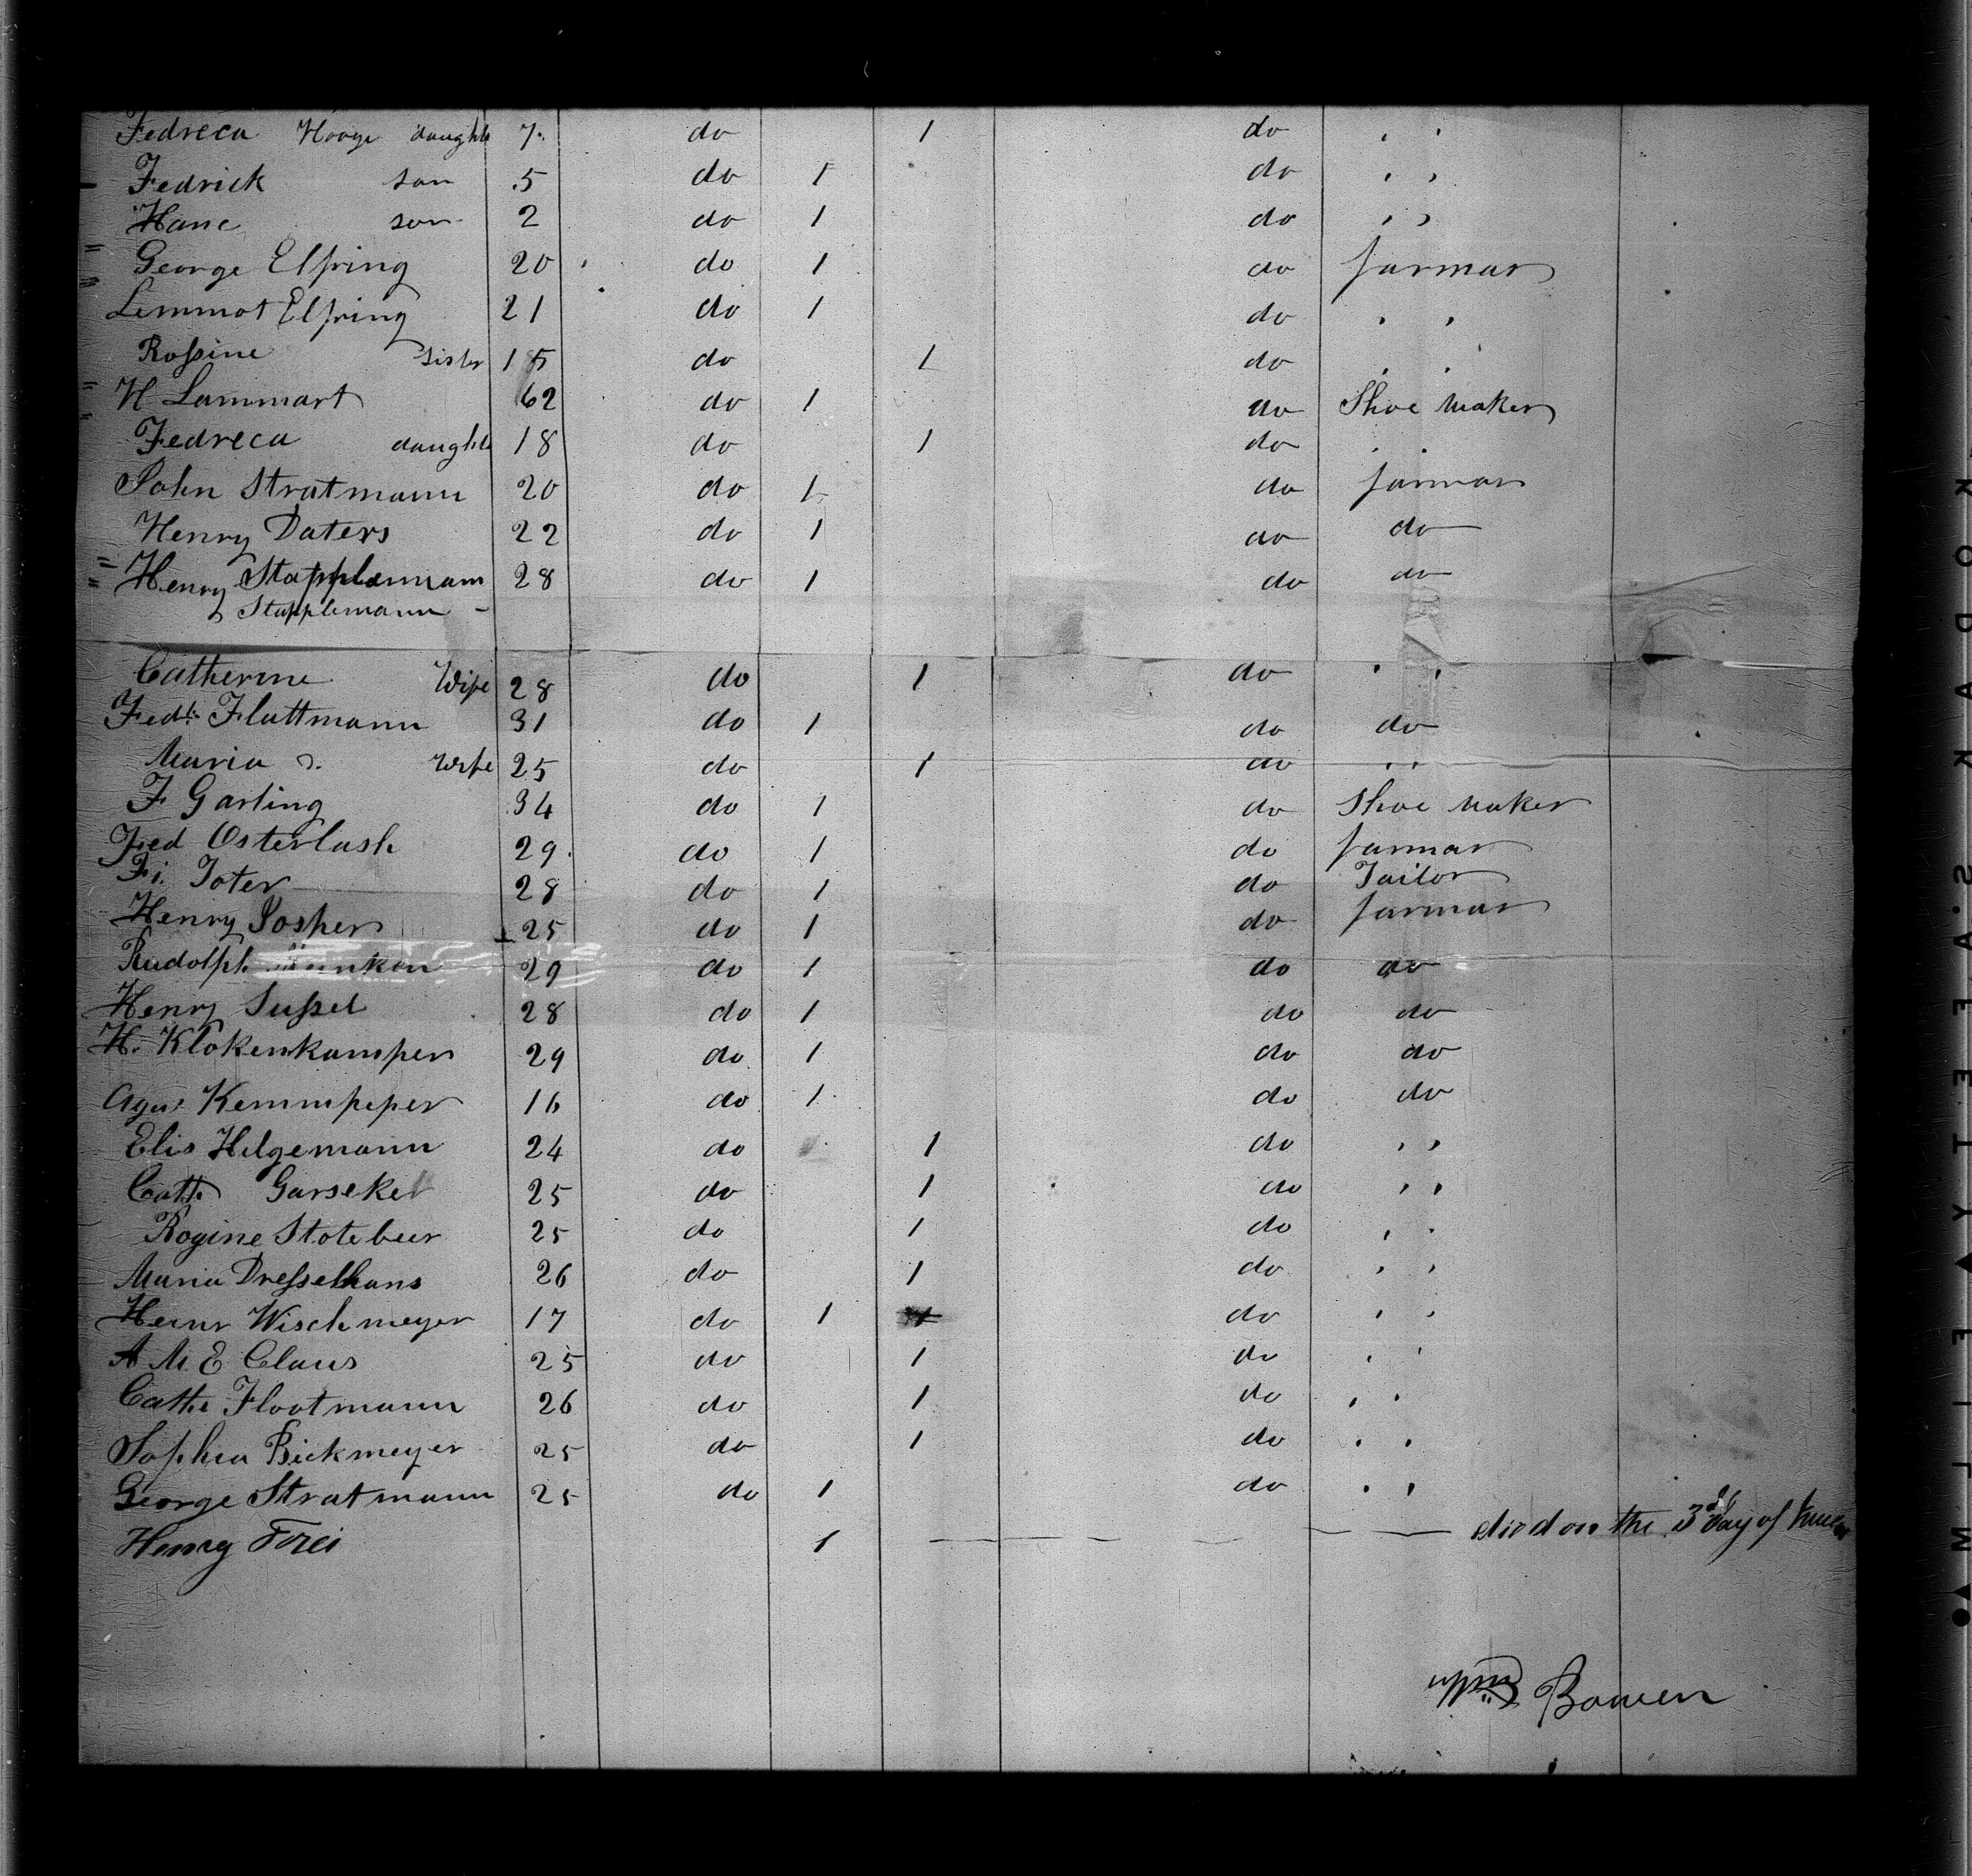 Fedreca Hooge daughte 7. do 1 do , ,
Fedrick son 5 do 1 do , ,
Hane son 2 do 1 do , ,
George Elfring 20 do 1 do farmar
Lemmot Elfring 21 do 1 do , ,
Roſsine Sister 15 do 1 do , ,
H Lammart 62 do 1 do Shoe Maker
Fedreca daughte 18 do 1 do , ,
John Stratmann 20 do 1 do farmar
Henry Daters 22 do 1 do do
Henry 28 do 1 do do
Stapplemann -
Catherine Wife 28 do 1 do , ,
Fedk Flattmann 31 do 1 do do
Maria Wife 25 do 1 do , ,
F Garling 34 do 1 do Shoe Maker
Fed Osterlush 29 do 1 do farmar
Fi. Toter 28 do 1 do Tailor
Henry Posher 25 do 1 do farmar
Rudolph 29 do 1 do do
Henry Suſsel 28 do 1 do do
H. Klokenkamper 29 do 1 do do
Kemmpeper 16 do 1 do do
Elis Helgemann 24 do 1 do , ,
Cathe Garseker 25 do 1 do , ,
Rogine Stotebeer 25 do 1 do , ,
Maria Dreſselhans 26 do 1 do , ,
Heinr Wischmeyer 17 do 1 do , ,
A M. E Claus 25 do 1 do , ,
Cathe Flootmann 26 do 1 do , ,
Sophia Bickmeyer 25 do 1 do , ,
George Stratmann 25 do 1 do , ,
Henry Frei 1 died on the 3d day of
Bowen